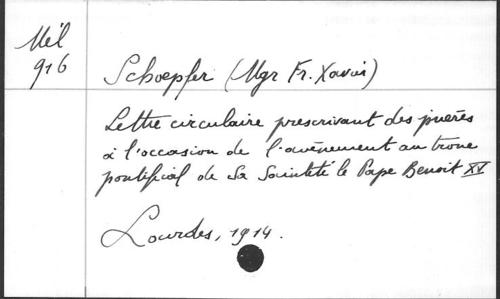 Mél
916
Schoepfer (Mgr Fr. Xavier)
Lettre circulaire prescrivant des prières
à l'occasion de l'avènement au trone
pontifical de Sa Sainteté le Pape Benoit XV
Lourdes, 1914.